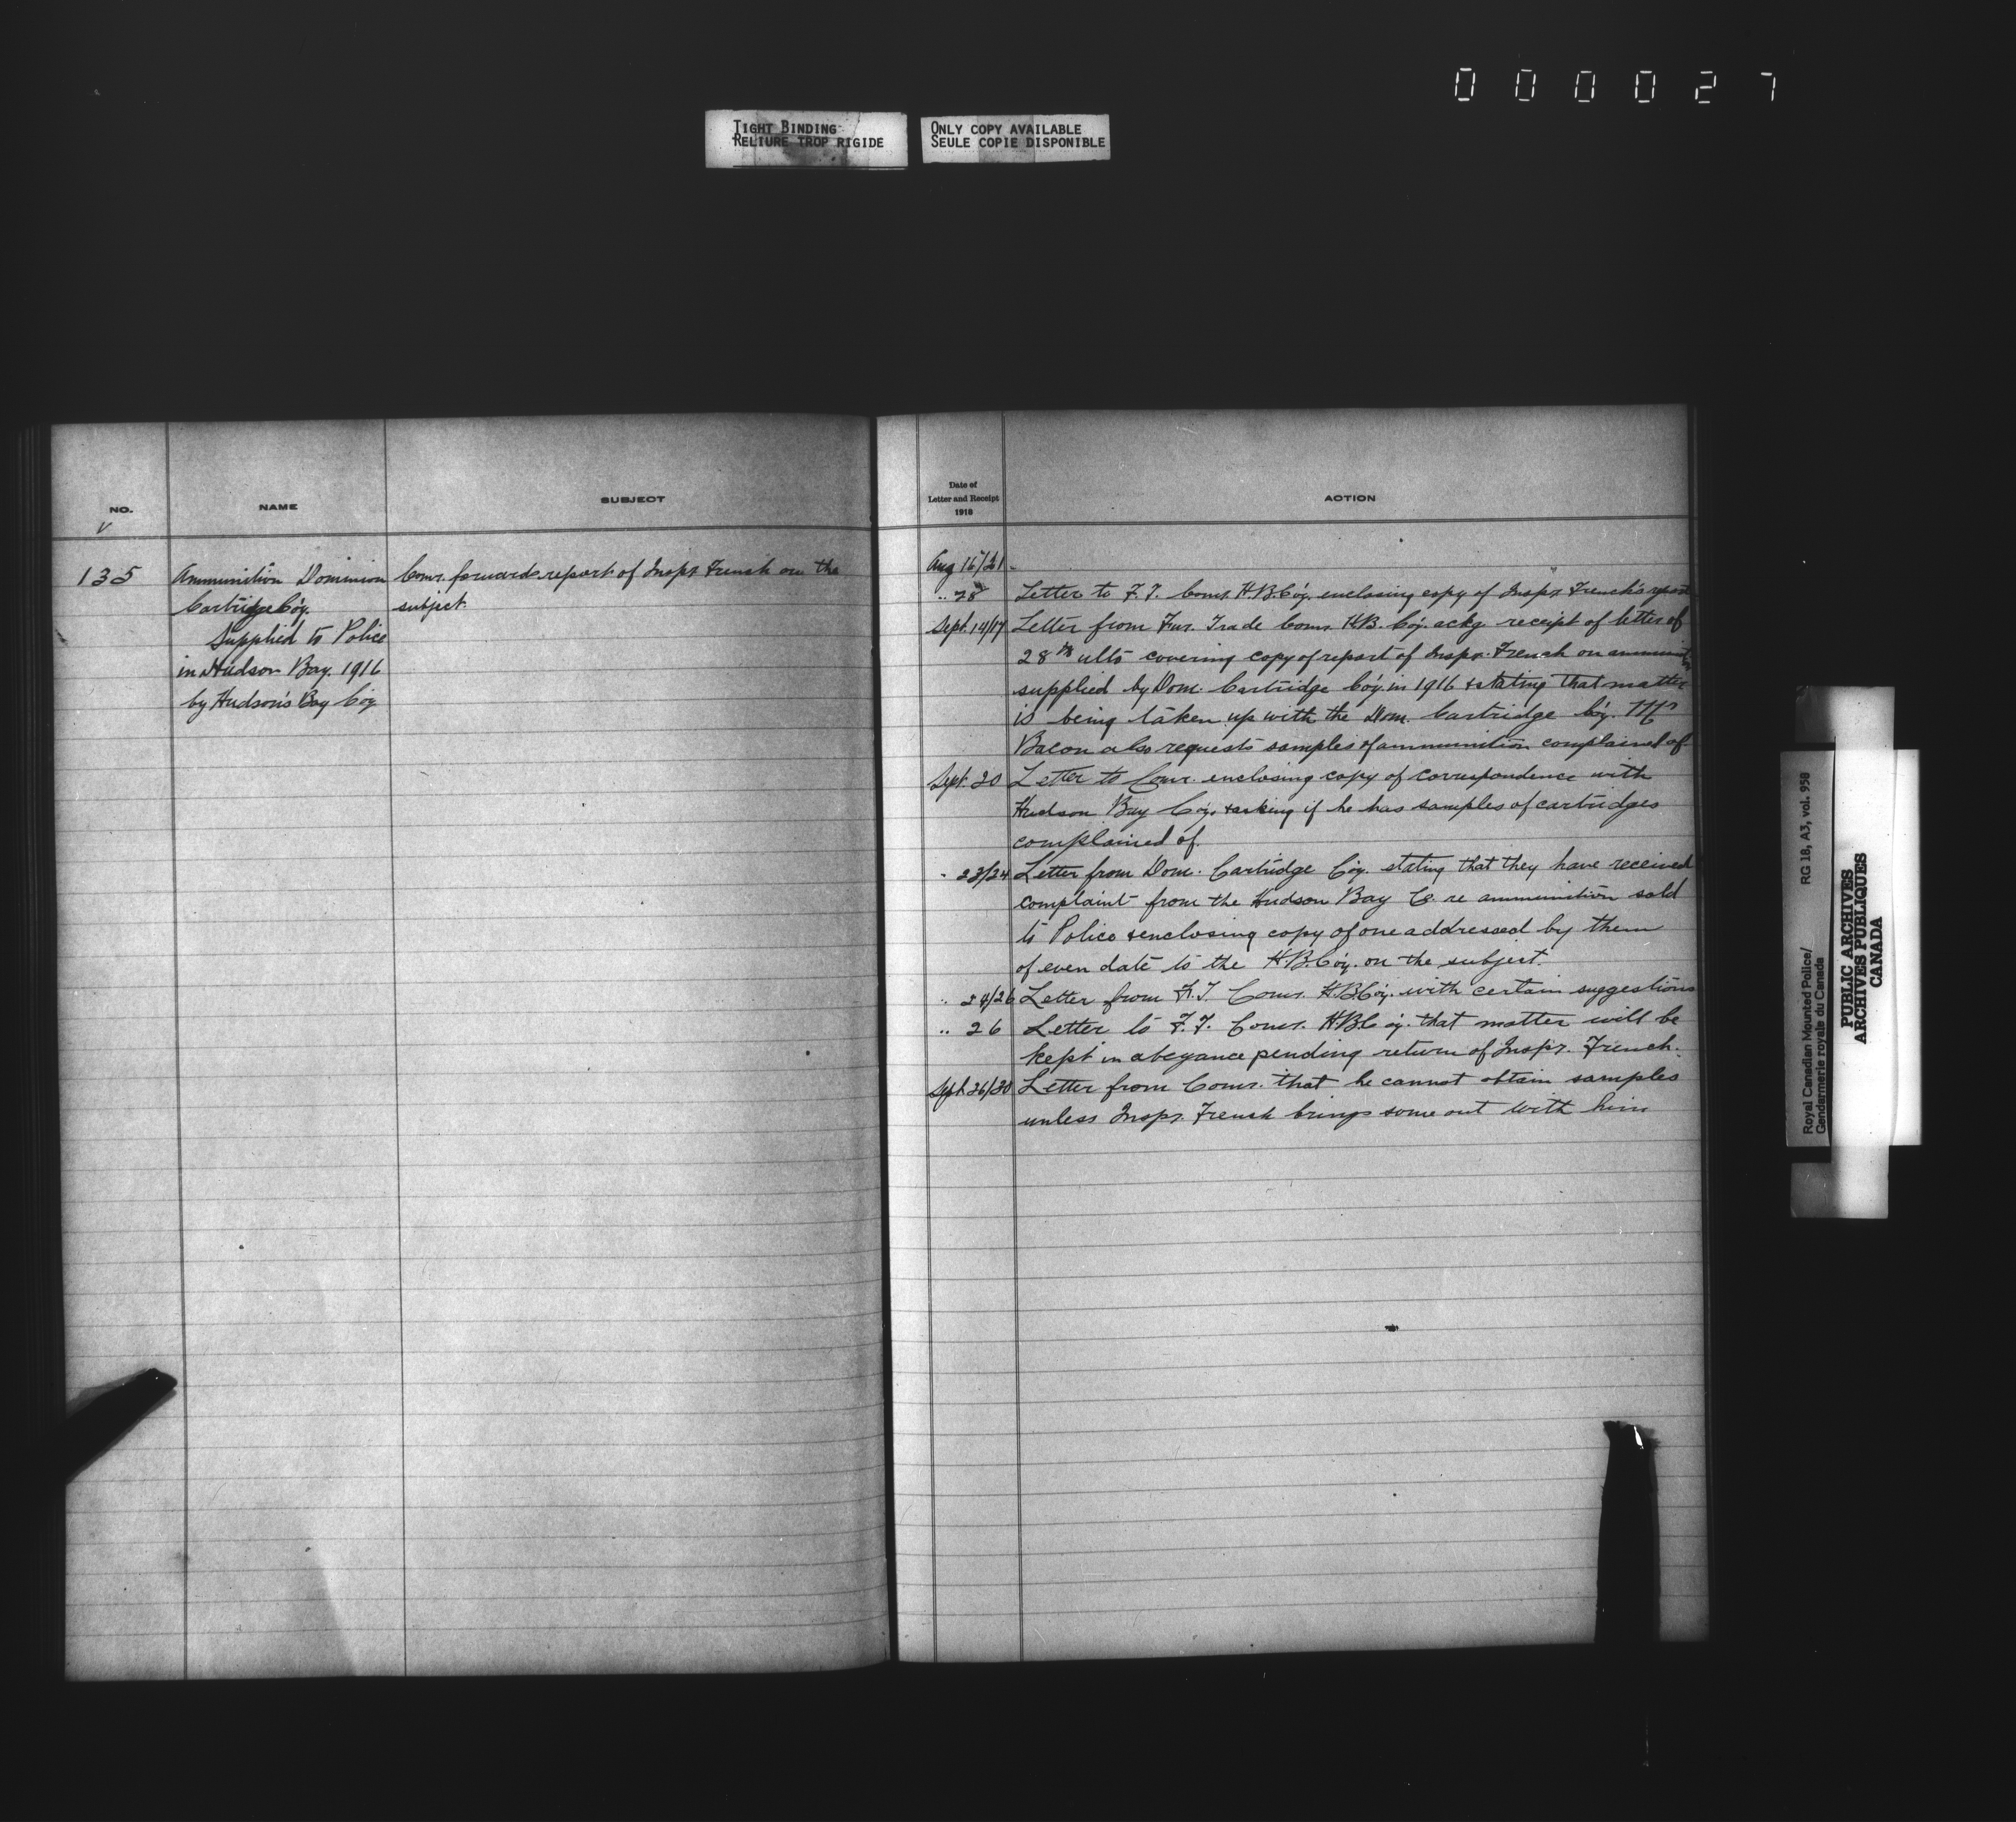 0 0 0 0 2 7
TIGHT BINDING
RELIURE TROP RIGIDE
ONLY COPY AVAILABLE
SEULE COPIE DISPONIBLE
NO.
NAME
SUBJECT
135
Ammunition Dominion
Cartridge Co'y.
Supplied to Police
in Hudson Bay. 1916
by Hudson's Bay Coy
Comr. forwards report of Inspr French on the
subject.
Date of
Letter and Receipt
1918
ACTION
Aug 16/21
" 28 Letter to F.T. Comr. H.B.Co'y. enclosing copy of Inspr French's report
Sept. 14/17 Letter from Fur. Trade Comr. H.B. Co'y. ackg receipt of letter of
28th ulto covering copy of report of Inspr. French on ammunition
supplied by Dom. Cartridge Co'y. in 1916 & stating that matter
is being taken up with the Dom. Cartridge Co'y. Mr
Bacon also requests samples of ammunition complained of
Sept. 20 Letter to Comr. enclosing copy of correspondence with
Hudson Bay Co'y. & asking if he has samples of cartridges
complained of.
" 23/24 Letter from Dom. Cartridge Co'y. stating that they have received
complaint from the Hudson Bay Co re ammunition sold
to Police & enclosing copy of one addressed by them
of even date to the H.B.Co'y. on the subject.
" 24/26 Letter from F.T. Comr. H.B.Co'y. with certain suggestions
" 26 Letter to F.T. Comr. H.B.Co'y. that matter will be
kept in abeyance pending return of Inspr. French.
Sept 26/30 Letter from Comr. that he cannot obtain samples
unless Inspr. French brings some out with him
Royal Canadian Mounted Police/ RG 18, A3, vol. 958
Gendarmerie royale du Canada
PUBLIC ARCHIVES
ARCHIVES PUBLIQUES
CANADA